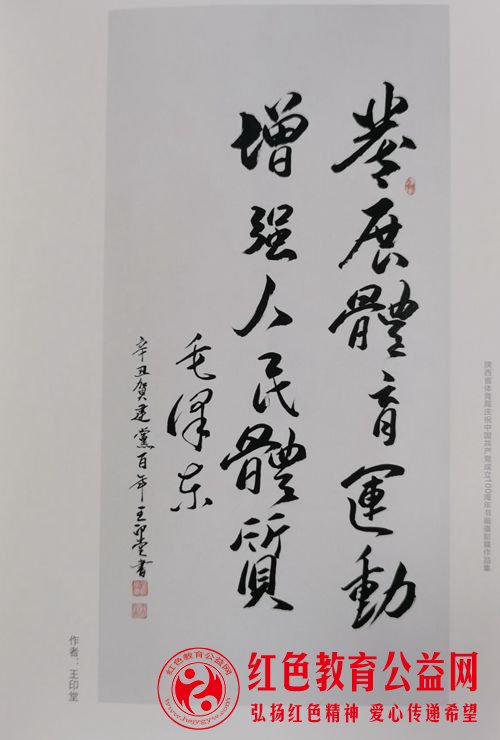 發展體育運動
增强人民體質
毛澤东
辛丑賀建黨百年王印堂書
陕西省体育局庆祝中国共产党成立100周年书画摄影展作品集
作者：王印堂
红色教育公益网
www.hsjygyw.com
红色教育公益网
弘扬红色精神 爱心传递希望